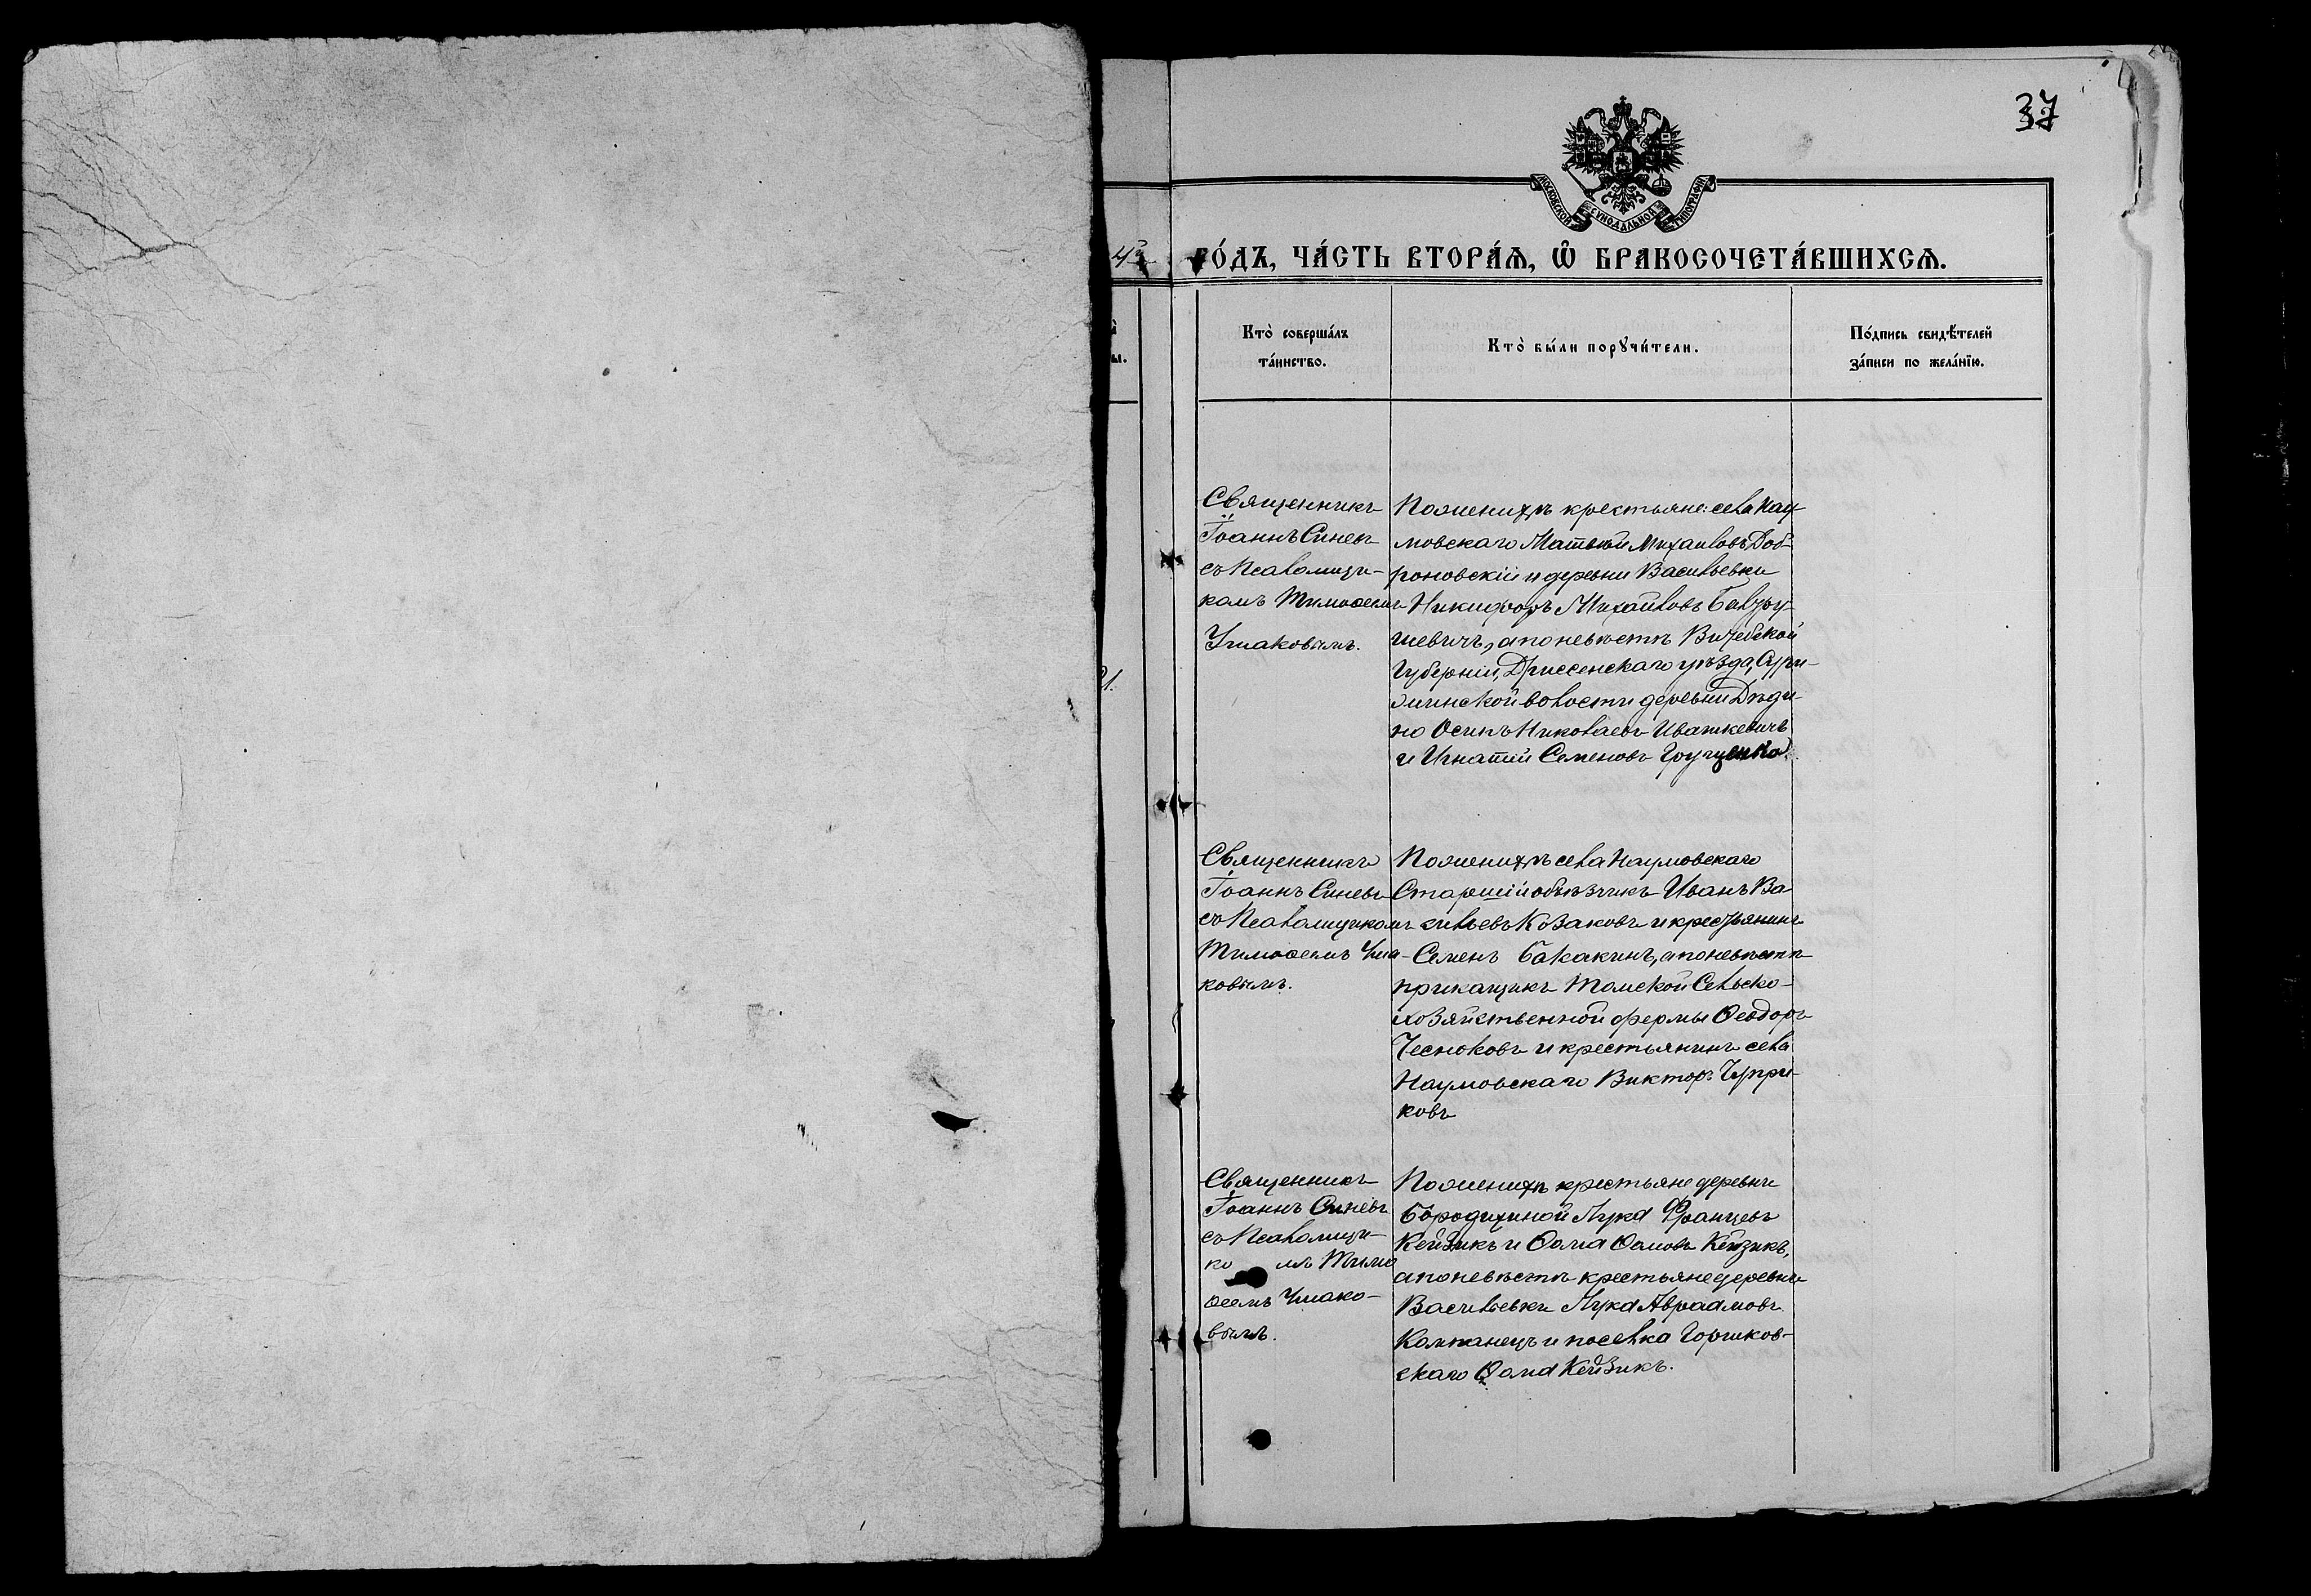 37
МОСКОВСКОЙ СѴНОДАЛЬНОЙ ТИПОГРАФІИ
ГО́ДЪ, ЧА́СТЬ ВТОРА́Ѧ, Ѡ҆ БРАКОСОЧЕТА́ВШИХСѦ.
Кто̀ соверша́лъ
та́инство.
Кто̀ бы́ли порꙋчи́тели.
По́дпись свидѣ́телей
за́писи по жела́нїю.
Священникъ
Іоаннъ Синевъ
съ Псаломщи-
комъ Тимоѳеемъ
Ушаковымъ.
По женихѣ крестьяне: села Нау
мовскаго Матвѣй Михаиловъ Доб-
роновскій и деревни Васильевки
Никифоръ Михайловъ
шевичъ, а по невѣстѣ Витебской
Губерніи, Дриссенскаго уѣзда,
волости деревни Дѣди-
но Осипъ Николаевъ Ивашкевичъ
и Игнатій Семеновъ
Священникъ
Іоаннъ Синевъ
съ Псаломщикомъ
Тимоѳеемъ Уша-
ковымъ.
По женихѣ села Наумовскаго
Старшій объѣзчикъ Иванъ Ва
сильевъ Козаковъ и крестьянинъ
Семенъ Бакакинъ, а по невѣстѣ
прикащикъ Томской Сельско-
хозяйственной фермы Ѳеодоръ
Чесноковъ и крестьянинъ села
Наумовскаго Викторъ Чупри-
ковъ
Священникъ
Іоаннъ Синевъ
съ Псаломщи-
комъ Тимо
ѳеемъ Ушако-
вымъ.
По женихѣ крестьяне деревни
Бородихиной Лука Францевъ
Кейзикъ и Ѳома Ѳомовъ Кейзикъ,
а по невѣстѣ крестьяне деревни
Васильевки Лука Авраамовъ
Компанецъ и поселка Горшков-
скаго Ѳома Кейзикъ.